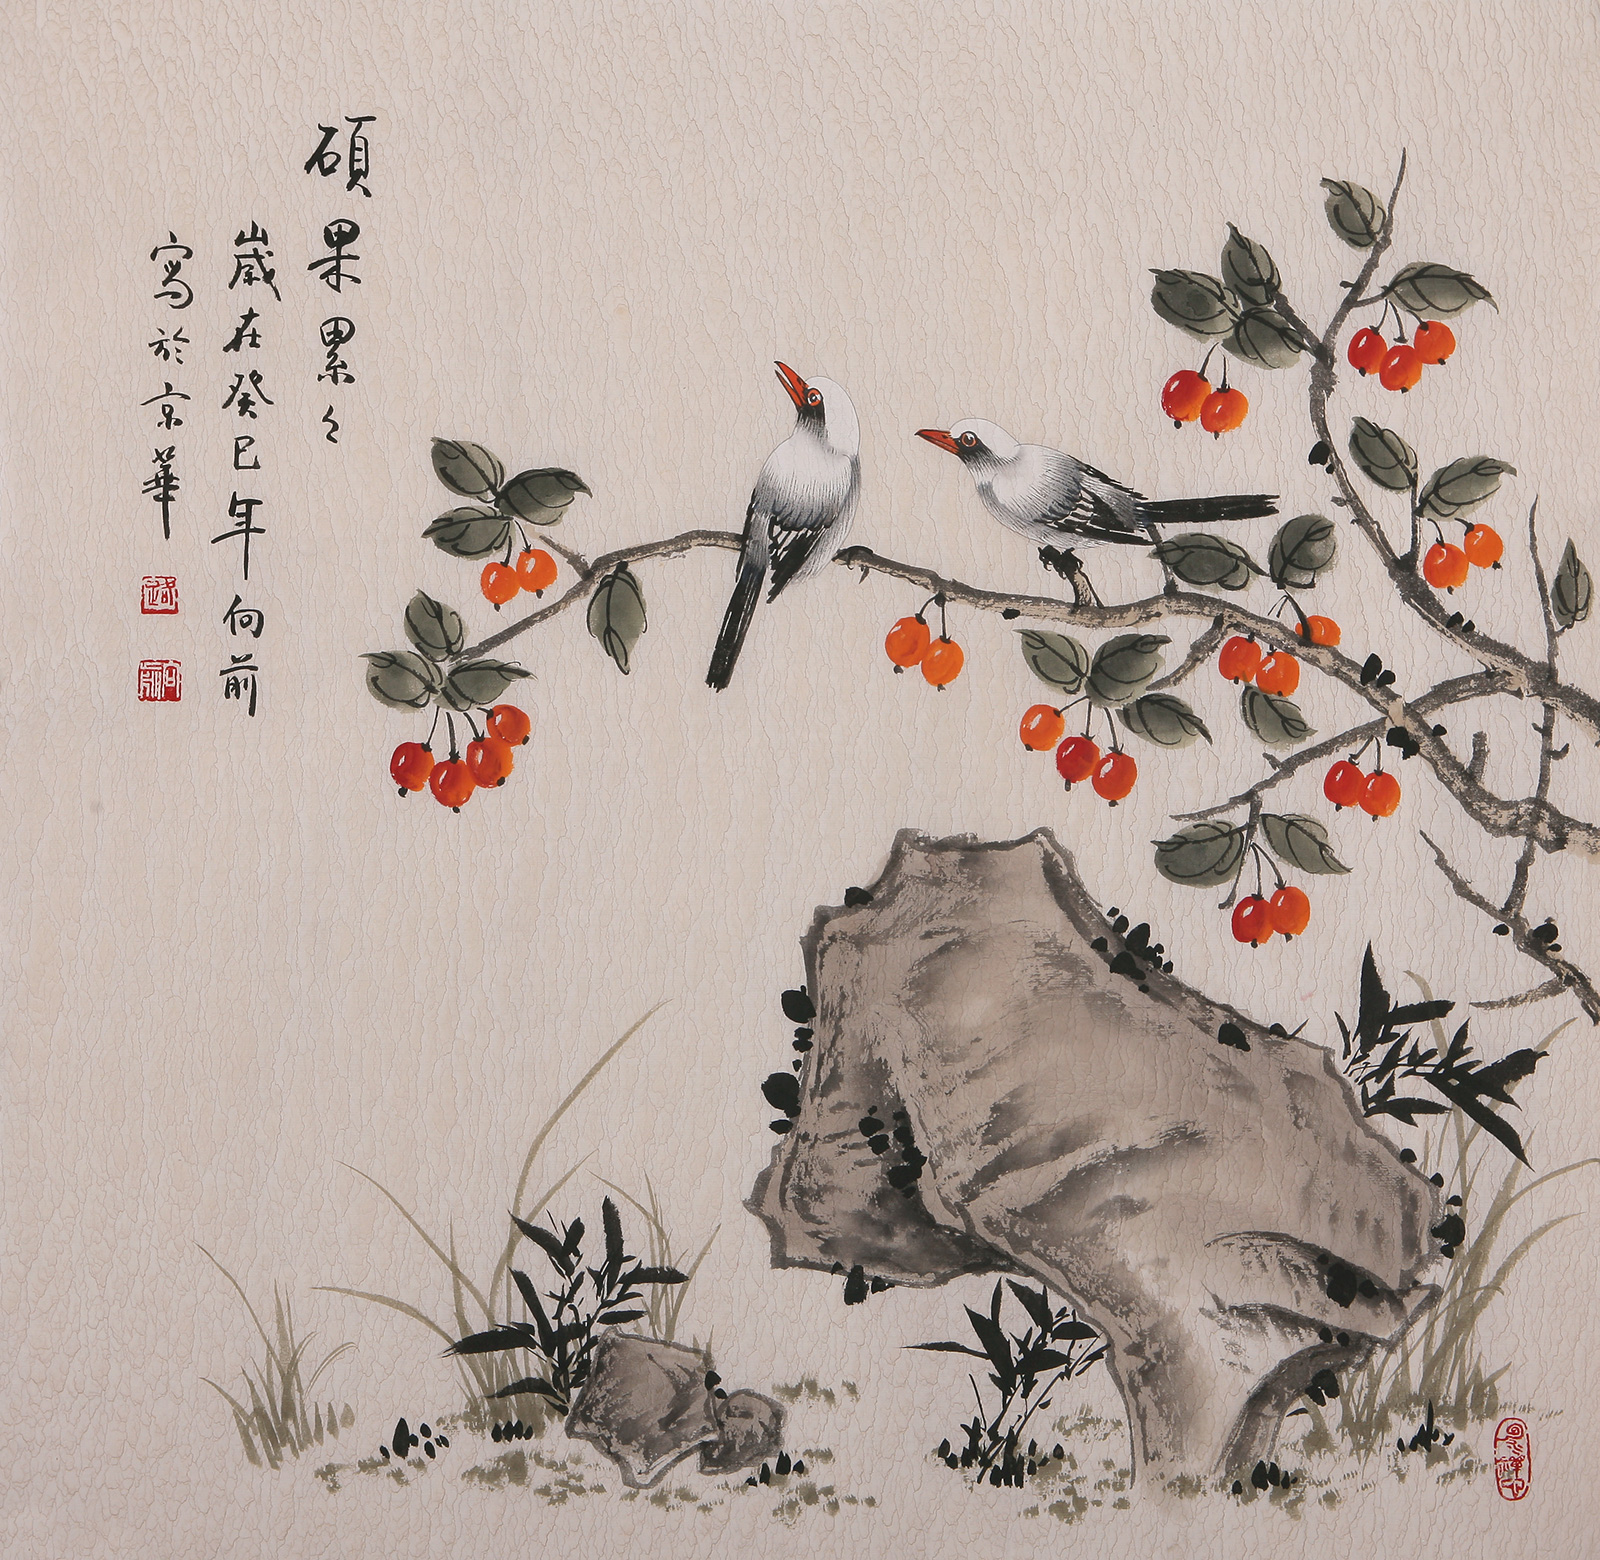 碩果累々
歲在癸巳年向前
寫於京華